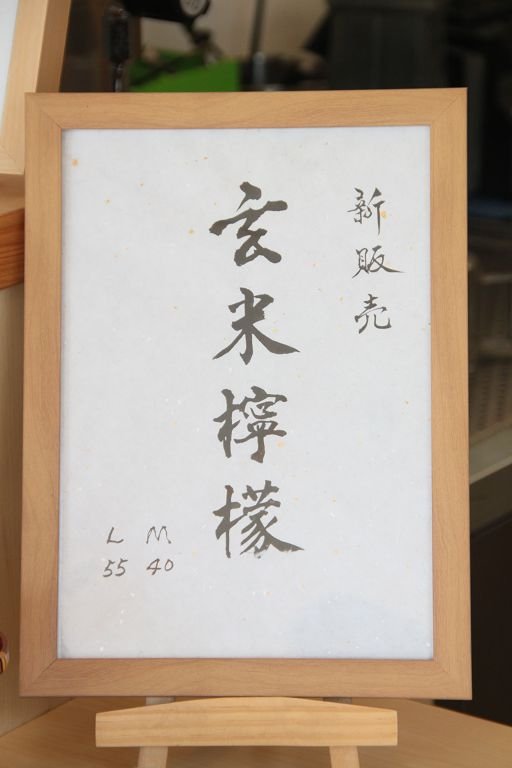 新販売
玄米檸檬
M 40
L 55